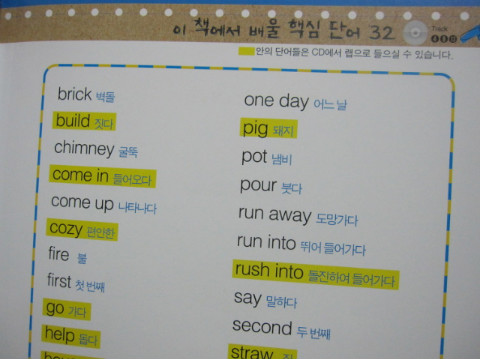 이 책에서 배울 핵심 단어 32
Track
안의 단어들은 CD에서 랩으로 들으실 수 있습니다.
brick 벽돌
build 짓다
chimney 굴뚝
come in 들어오다
come up 나타나다
cozy 편안한
fire 불
first 첫 번째
go 가다
help 돕다
one day 어느 날
pig 돼지
pot 냄비
pour 붓다
run away 도망가다
run into 뛰어 들어가다
rush into 돌진하여 들어가다
say 말하다
second 두 번째
straw 짚